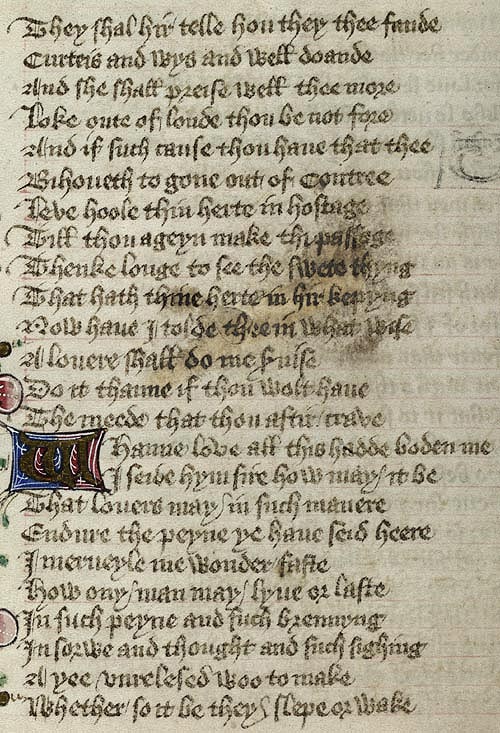 They shal hir telle hou they thee fande
Curteis and wys and well doande
And she shall preise well thee more
Loke oute of londe thou be not fore
And if such cause thou haue that thee
Bihoueth to gone out of Contree
Leve hoole thin herte in hostage
Till thou ageyn make thi passage
Thenke longe to see the swete thyng
That hath thine herte in hir kepyng
Now haue I tolde thee in what wise
A lovere shall do me servise
Do it thanne if thou wolt haue
The meede that thou aftir crave
Whanne love all this hadde boden me
I seide hym sire how may it be
That lovers may in such manere
Endure the peyne ye haue seid heere
I merveyle me wonder faste
How ony man may lyve or laste
In such peyne and such brennyng
In sorwe and thought and such sighing
A yee vnrelesed woo to make
Whether so it be they slepe or wake